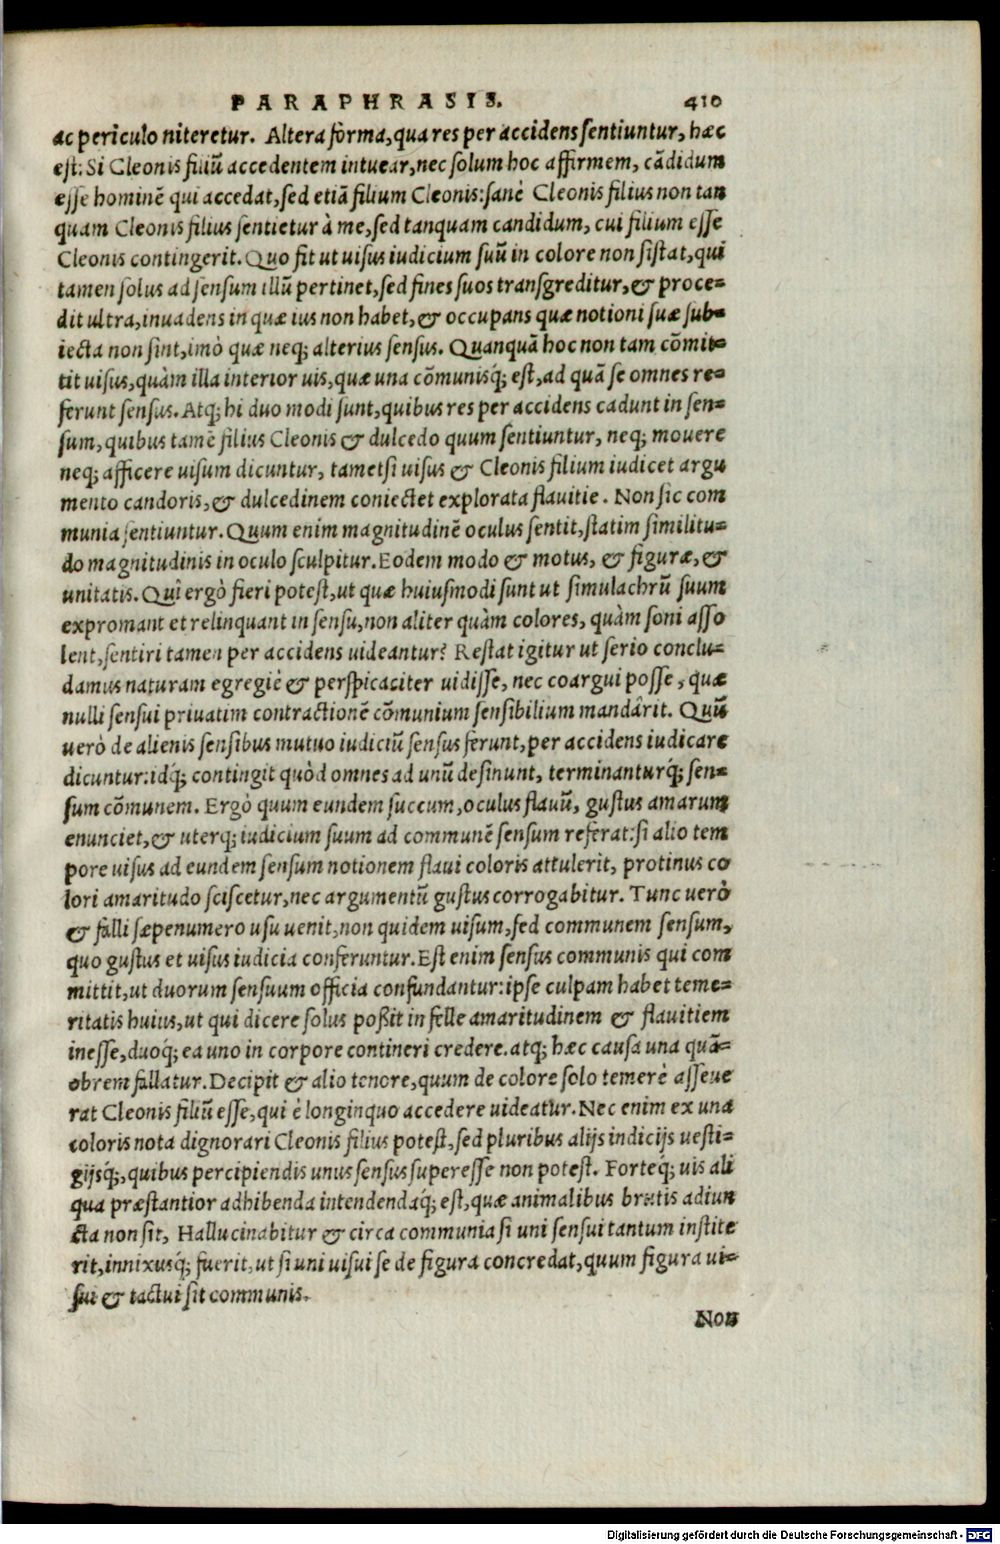 PARAPHRASIS. 410
ac periculo niteretur. Altera forma, qua res per accidens sentiuntur, hæc
est: Si Cleonis filiū accedentem intuear, nec solum hoc affirmem, cādidum
esse hominē qui accedat, sed etiā filium Cleonis: sanè Cleonis filius non tan
quam Cleonis filius sentietur à me, sed tanquam candidum, cui filium esse
Cleonis contingerit. Quo fit ut uisus iudicium suū in colore non sistat, qui
tamen solus ad sensum illū pertinet, sed fines suos transgreditur, & proce=
dit ultra, inuadens in quæ ius non habet, & occupans quæ notioni suæ sub=
iecta non sint, imò quæ neq; alterius sensus. Quanquā hoc non tam cōmit=
tit uisus, quàm illa interior uis, quæ una cōmunisq́; est, ad quā se omnes re=
ferunt sensus. Atq; hi duo modi sunt, quibus res per accidens cadunt in sen=
sum, quibus tamē filius Cleonis & dulcedo quum sentiuntur, neq; mouere
neq; afficere uisum dicuntur, tametsi uisus & Cleonis filium iudicet argu
mento candoris, & dulcedinem coniectet explorata flauitie. Non sic com
munia sentiuntur. Quum enim magnitudinē oculus sentit, statim similitu=
do magnitudinis in oculo sculpitur. Eodem modo & motus, & figuræ, &
unitatis. Quî ergò fieri potest, ut quæ huiusmodi sunt ut simulachrū suum
expromant et relinquant in sensu, non aliter quàm colores, quàm soni asso
lent, sentiri tamen per accidens uideantur? Restat igitur ut serio conclu=
damus naturam egregiè & perspicaciter uidisse, nec coargui posse, quæ
nulli sensui priuatim contractionē cōmunium sensibilium mandârit. Quū
uerò de alienis sensibus mutuo iudiciū sensus ferunt, per accidens iudicare
dicuntur: idq́; contingit quòd omnes ad unū desinunt, terminanturq́; sen=
sum cōmunem. Ergò quum eundem succum, oculus flauū, gustus amarum
enunciet, & uterq; iudicium suum ad communē sensum referat: si alio tem
pore uisus ad eundem sensum notionem flaui coloris attulerit, protinus co
lori amaritudo sciscetur, nec argumentū gustus corrogabitur. Tunc uerò
& falli sæpenumero usu uenit, non quidem uisum, sed communem sensum,
quo gustus et uisus iudicia conferuntur. Est enim sensus communis qui com
mittit, ut duorum sensuum officia confundantur: ipse culpam habet teme=
ritatis huius, ut qui dicere solus poßit in felle amaritudinem & flauitiem
inesse, duoq́; ea uno in corpore contineri credere. atq; hæc causa una quā=
obrem fallatur. Decipit & alio tenore, quum de colore solo temerè asseue
rat Cleonis filiū esse, qui è longinquo accedere uideatur. Nec enim ex una
coloris nota dignorari Cleonis filius potest, sed pluribus alijs indicijs uesti=
gijsq́;, quibus percipiendis unus sensus superesse non potest. Forteq́; uis ali
qua præstantior adhibenda intendendaq́; est, quæ animalibus brutis adiun
cta non sit, Hallucinabitur & circa communia si uni sensui tantum institе
rit, innixusq́; fuerit, ut si uni uisui se de figura concredat, quum figura ui=
sui & tactui sit communis.
Non
Digitalisierung gefördert durch die Deutsche Forschungsgemeinschaft - DFG